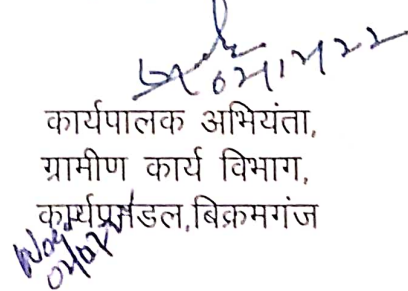 कार्यपालक अभियंता,
ग्रामीण कार्य विभाग,
कार्यप्रमंडल,बिक्रमगंज